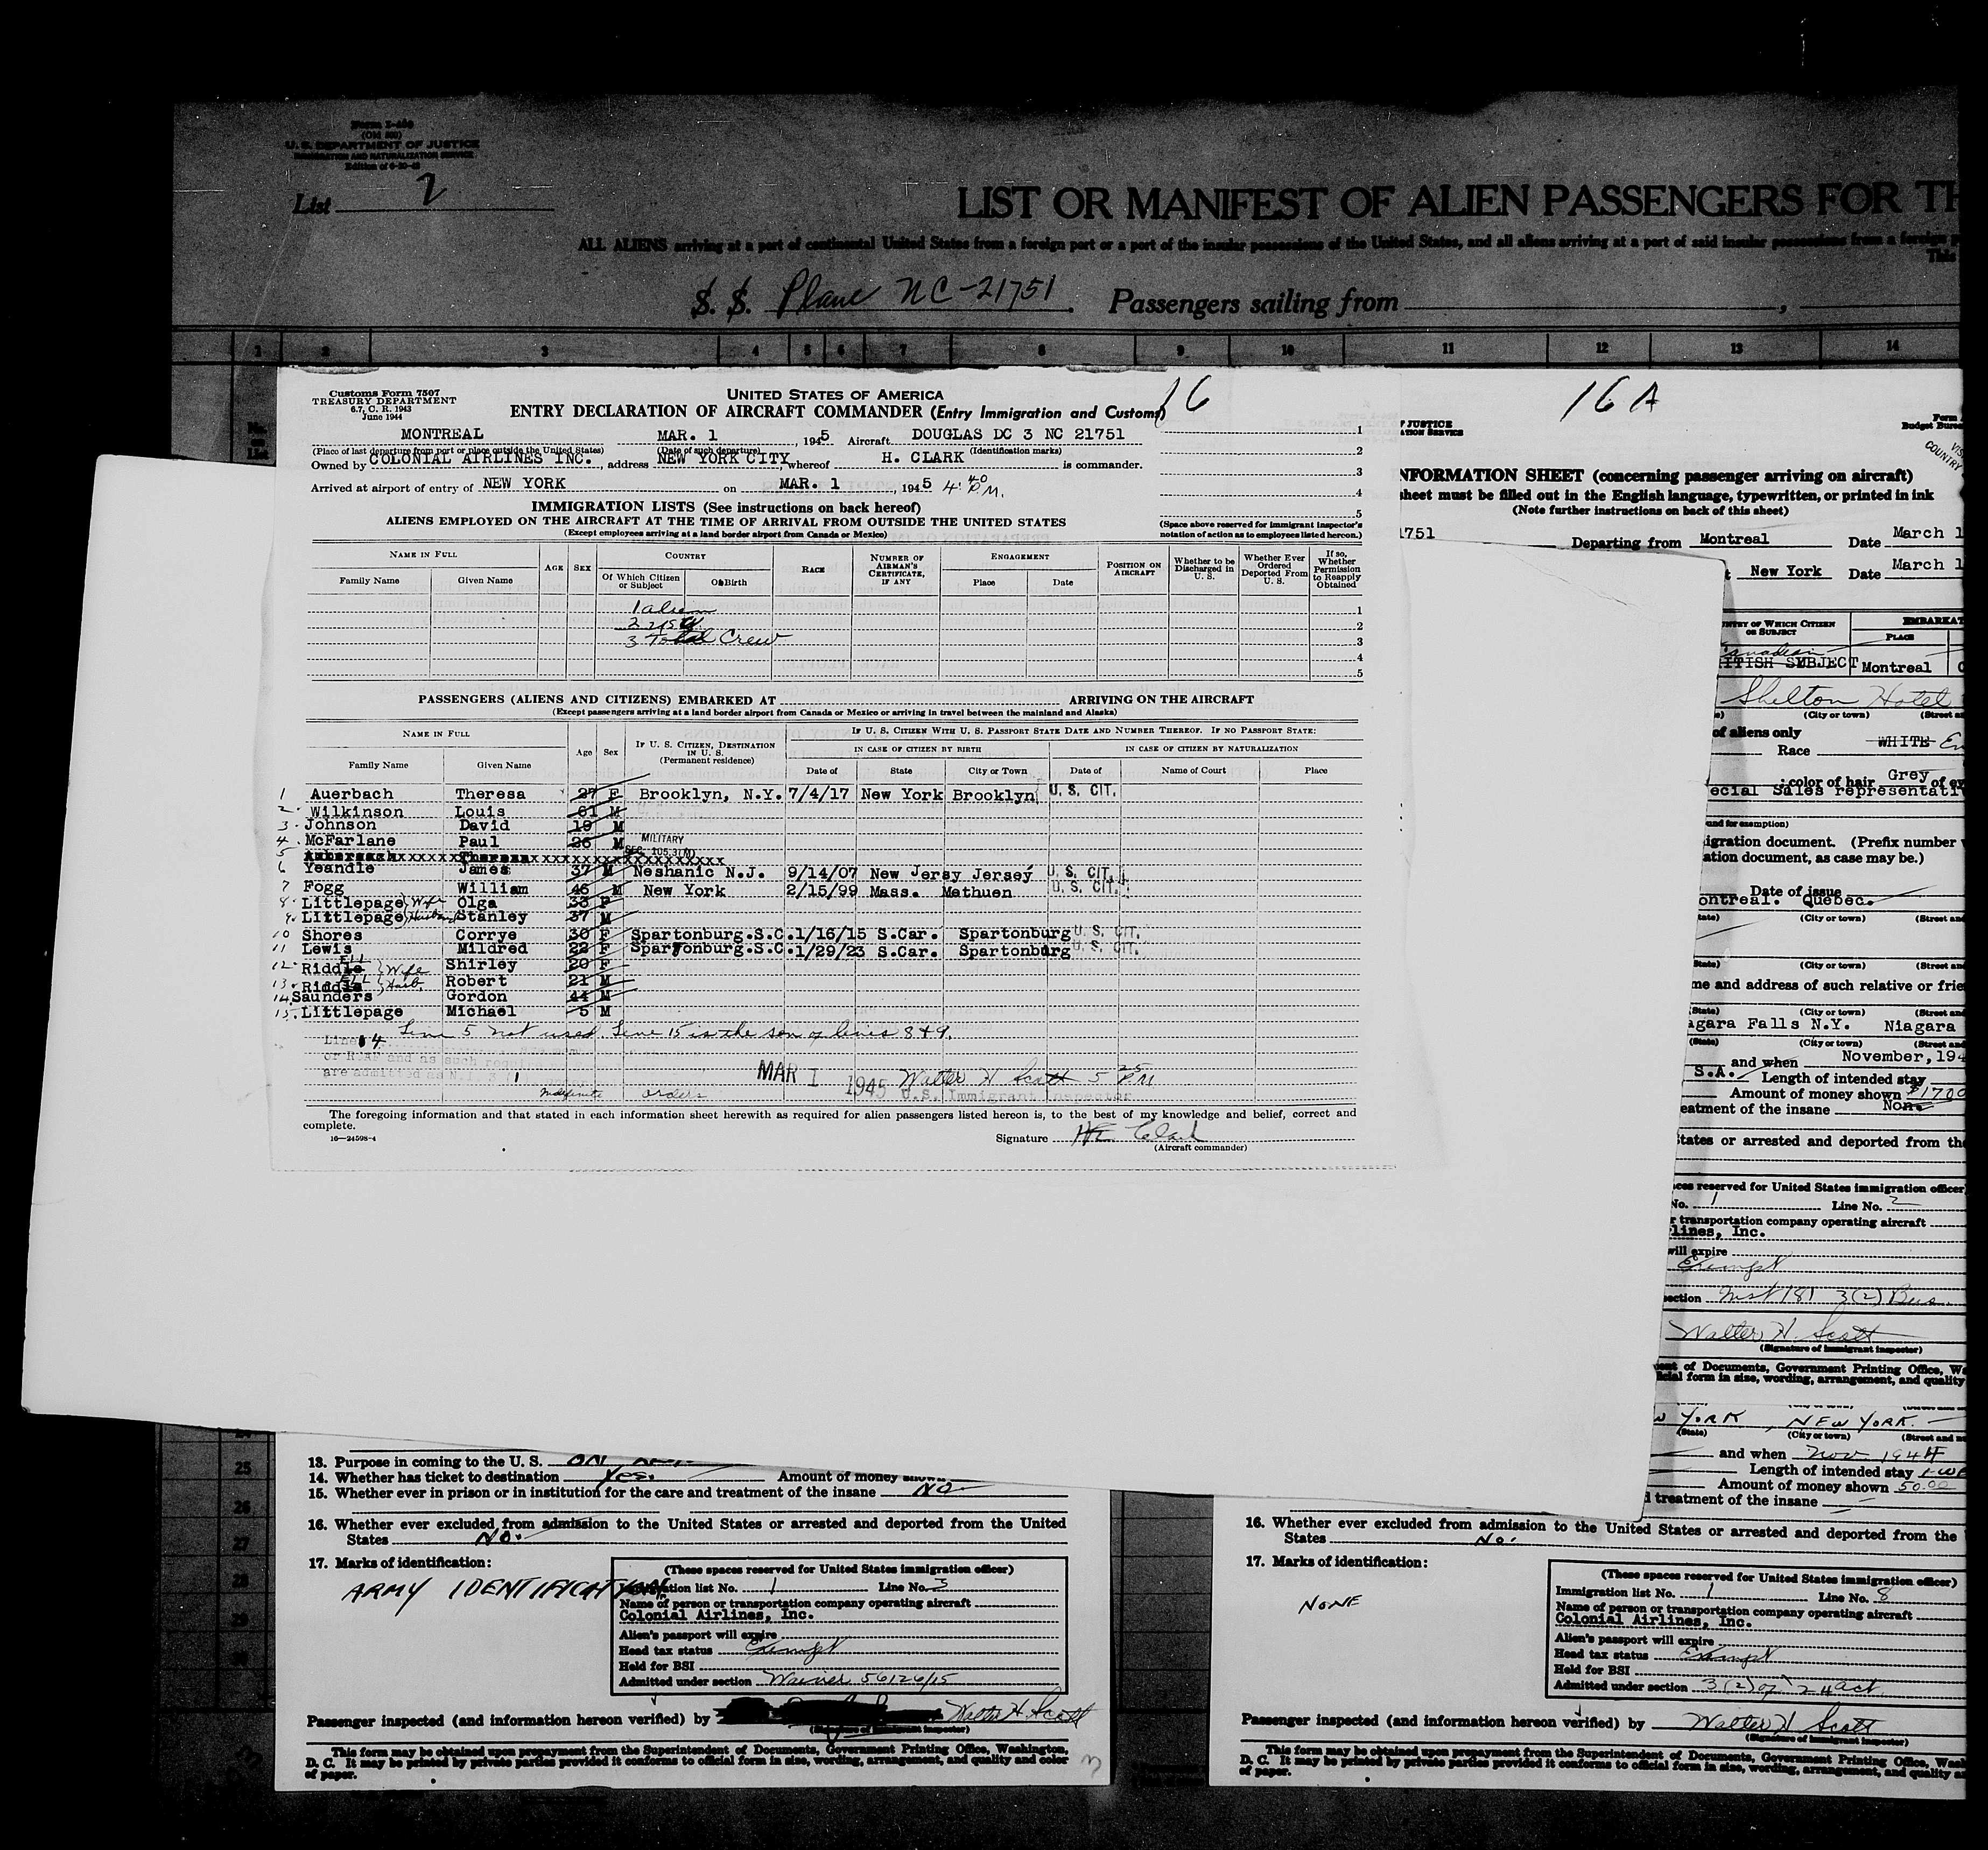 Form I-466
U. S. DEPARTMENT OF JUSTICE
IMMIGRATION AND NATURALIZATION SERVICE
List 2
LIST OR MANIFEST OF ALIEN PASSENGERS FOR TH
ALL ALIENS arriving at a port of continental United States from a foreign port or a port of the insular possessions of the United States, and all aliens arriving at a port of said insular possessions from a foreign
This
S. S. Plane NC-21751 Passengers sailing from
1 2 3 4 5 6 7 8 9 10 11 12 13 14
Customs Form 7507
TREASURY DEPARTMENT
6.7, C. R. 1943
June 1944
UNITED STATES OF AMERICA
16
ENTRY DECLARATION OF AIRCRAFT COMMANDER (Entry Immigration and Customs)
MONTREAL MAR. 1, 1945 Aircraft DOUGLAS DC 3 NC 21751
(Place of last departure from port or place outside the United States) (Date of such departure) (Identification marks)
Owned by COLONIAL AIRLINES INC., address NEW YORK CITY, whereof H. CLARK is commander.
Arrived at airport of entry of NEW YORK on MAR. 1, 1945 4:40 P.M.
1
2
3
4
5
(Space above reserved for immigrant inspector's notation of action as to employees listed hereon.)
IMMIGRATION LISTS (See instructions on back hereof)
ALIENS EMPLOYED ON THE AIRCRAFT AT THE TIME OF ARRIVAL FROM OUTSIDE THE UNITED STATES
(Except employees arriving at a land border airport from Canada or Mexico)
NAME IN FULL AGE SEX COUNTRY RACE NUMBER OF AIRMAN'S CERTIFICATE, IF ANY ENGAGEMENT POSITION ON AIRCRAFT Whether to be Discharged in U. S. Whether Ever Ordered Deported From U. S. If so, Whether Permission to Reapply Obtained
Family Name Given Name Of Which Citizen or Subject Of Birth Place Date
1 alien 1
2 USC 2
3 Total Crew 3
4
5
PASSENGERS (ALIENS AND CITIZENS) EMBARKED AT ARRIVING ON THE AIRCRAFT
(Except passengers arriving at a land border airport from Canada or Mexico or arriving in travel between the mainland and Alaska)
NAME IN FULL Age Sex IF U. S. CITIZEN, DESTINATION IN U. S. (Permanent residence) IF U. S. CITIZEN WITH U. S. PASSPORT STATE DATE AND NUMBER THEREOF. IF NO PASSPORT STATE:
IN CASE OF CITIZEN BY BIRTH IN CASE OF CITIZEN BY NATURALIZATION
Family Name Given Name Date of State City or Town Date of Name of Court Place
1 Auerbach Theresa 27 F Brooklyn, N.Y. 7/4/17 New York Brooklyn U. S. CIT.
2 Wilkinson Louis 61 M
3 Johnson David 19 M
4 McFarlane Paul 26 M MILITARY SEC. 105.3(N)
5
6 Yeandle James 37 M Neshanic N.J. 9/14/07 New Jersy Jersey U. S. CIT.
7 Fogg William 46 M New York 2/15/99 Mass. Methuen U. S. CIT.
8 Littlepage Wife Olga 33 F
9 Littlepage Husband Stanley 37 M
10 Shores Corrye 30 F Spartonburg.S.C. 1/16/15 S.Car. Spartonburg U. S. CIT.
11 Lewis Mildred 22 F Spartonburg.S.C. 1/29/23 S.Car. Spartonburg U. S. CIT.
12 Riddle ELL Wife Shirley 20 F
13 Riddle ELL Husb. Robert 21 M
14 Saunders Gordon 44 M
15. Littlepage Michael 5 M
Line 5 not used. Line 15 is the son of lines 8 & 9.
Line 4
or RCAF and as such
are admitted as
MAR 1 1945 Walter H Scott 5 25 PM
Indefinite orders U.S. Immigrant Inspector
The foregoing information and that stated in each information sheet herewith as required for alien passengers listed hereon is, to the best of my knowledge and belief, correct and complete.
16—24598-4
Signature H Clark
(Aircraft commander)
16 A
JUSTICE
Form
Budget Burea
COUNTRY
NFORMATION SHEET (concerning passenger arriving on aircraft)
sheet must be filled out in the English language, typewritten, or printed in ink
(Note further instructions on back of this sheet)
1751 Departing from Montreal Date March 1
New York Date March 1
COUNTRY OF WHICH CITIZEN OR SUBJECT EMBARKAT
PLACE
Canadian
BRITISH SUBJECT Montreal
Shelton Hotel
(City or town) (Street an
of aliens only
Race WHITE
; color of hair Grey of ey
ecial Sales representati
und for exemption)
igration document. (Prefix number
ation document, as case may be.)
Date of issue
ontreal. Quebec.
(City or town) (Street an
(State) (City or town) (Street an
me and address of such relative or frie
(State) (City or town) (Street and
agara Falls N.Y. Niagara
(State) (City or town) (Street and
and when November, 194
S.A. Length of intended stay
Amount of money shown $1700
eatment of the insane None
tates or arrested and deported from the
ces reserved for United States immigration officer)
No. 1 Line No. 2
r transportation company operating aircraft
lines, Inc.
will expire
Exempt
section Inst 181 3(2) Bus.
Walter H. Scott
(Signature of immigrant inspector)
ent of Documents, Government Printing Office, Wa
icial form in size, wording, arrangement, and quality
YORK, NEW YORK.
(State) (City or town) (Street and n
and when Nov 1944
Length of intended stay
Amount of money shown 50.00
treatment of the insane
25
26
27
28
29
30
13. Purpose in coming to the U. S. ON
14. Whether has ticket to destination Yes. Amount of money shown
15. Whether ever in prison or in institution for the care and treatment of the insane NO
16. Whether ever excluded from admission to the United States or arrested and deported from the United States No.
17. Marks of identification:
ARMY IDENTIFICATION
(These spaces reserved for United States immigration officer)
Immigration list No. 1 Line No. 3
Name of person or transportation company operating aircraft
Colonial Airlines, Inc.
Alien's passport will expire
Head tax status Exempt
Held for BSI
Admitted under section Waiver 56126/15
Passenger inspected (and information hereon verified) by Walter H. Scott
(Signature of immigrant inspector)
This form may be obtained upon prepayment from the Superintendent of Documents, Government Printing Office, Washington, D. C. It may be printed by private parties provided it conforms to official form in size, wording, arrangement, and quality and color of paper.
3
16. Whether ever excluded from admission to the United States or arrested and deported from the
States No.
17. Marks of identification:
NONE
(These spaces reserved for United States immigration officer)
Immigration list No. 1 Line No. 8
Name of person or transportation company operating aircraft
Colonial Airlines, Inc.
Alien's passport will expire
Head tax status Exempt
Held for BSI
Admitted under section 3(2) of 24 act
Passenger inspected (and information hereon verified) by Walter H Scott
(Signature of immigrant inspector)
This form may be obtained upon prepayment from the Superintendent of Documents, Government Printing Office, Wash
D. C. It may be printed by private parties provided it conforms to official form in size, wording, arrangement, and quality a
of paper.